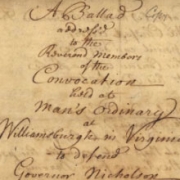 A Ballad
address'd
to the
Reverend Members
of the
Convocation
held at
Man's Ordinary
at
Williamsburgh in Virginia
to defend
Governor Nicholson